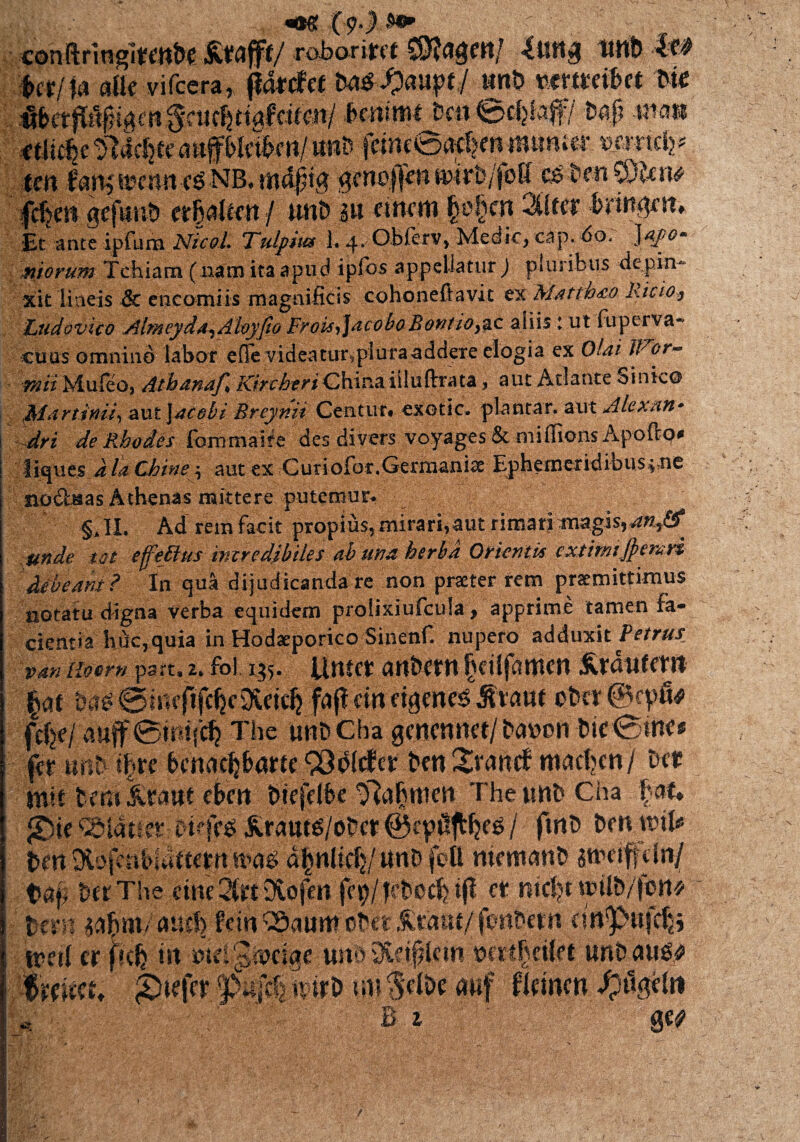 (9.)
constringirende Krafft/ roboriret Magen/ Lung und Le⸗
ber/ ja alle viscera, stärcket das Haupt/ und vertreibet die
überflüßigen Feuchtigkeiten/ benimt den Schlaff/ daß man
etliche Nächte auffbleiben/ und seine Sachen munter verrich⸗
ten kan; wenn es NB. mäßig genossen wird/ soll es den Men⸗
schen gesund erhalten / und zu einem hohen Alter bringen.
Et ante ipsum Nicol. Tulpius l. 4. Observ, Medic, cap. 60. Japo-
niorum Tchiam (nam ita apud ipsos appellatur) pluribus depin-
xit lineis & encomiis magnificis cohonestavit ex Matthæo Ricio,
Ludovico Almeyda, Aloysio Frois, Jacobo Bontio, ac aliis: ut superva-
cuus omninò labor esse videatur, plura addere elogia ex Olai Wor-
mii Museo, Athanas. Kircheri China illustrata, aut Atlante Sinico
Martinii, aut Jacobi Breynii Centur. exotic. plantar. aut Alexan-
dri de Rhodes sommaire des divers voyages & missions Aposto-
liques à la Chine; aut ex Curiosor. Germaniæ Ephemeridibus; ne
noctuas Athenas mittere putemur.
§. II. Ad rem facit propiùs, mirari, aut rimari magis, an, &
unde tot effectus incredibiles ab una herbâ Orientis extimi sperari
debeant? In quâ dijudicanda re non præter rem præmittimus
notatu digna verba equidem prolixiuscula, apprimè tamen fa-
cientia hùc, quia in Hodæporico Sinens. nupero adduxit Petrus
van Hoorn part. 2. fol. 135. Unter andern heilsamen Kräutern
hat das Sinesische Reich fast ein eigenes Kraut oder Gepü⸗
sche/ auff Sinisch The und Cha genennet/ davon die Sine⸗
ser und ihre benachbarte Völcker den Tranck machen/ der
mit dem Kraut eben dieselbe Nahmen The und Cha hat.
Die Blätter dieses Krauts/ oder Gepüsches / sind den wil⸗
den Rosenblättern was ähnlich/ und soll niemand zweiffeln/
daß der The eine Art Rosen sey/ jedoch ist er nicht wild/ son⸗
dern zahm/ auch kein Baum oder Kraut/ sondern ein Pusch;
weil er sich in viel Zweige und Reißlein vertheilet und aus⸗
breitet. Dieser Pusch wird im Felde auf kleinen Hügeln
B 2 ge⸗